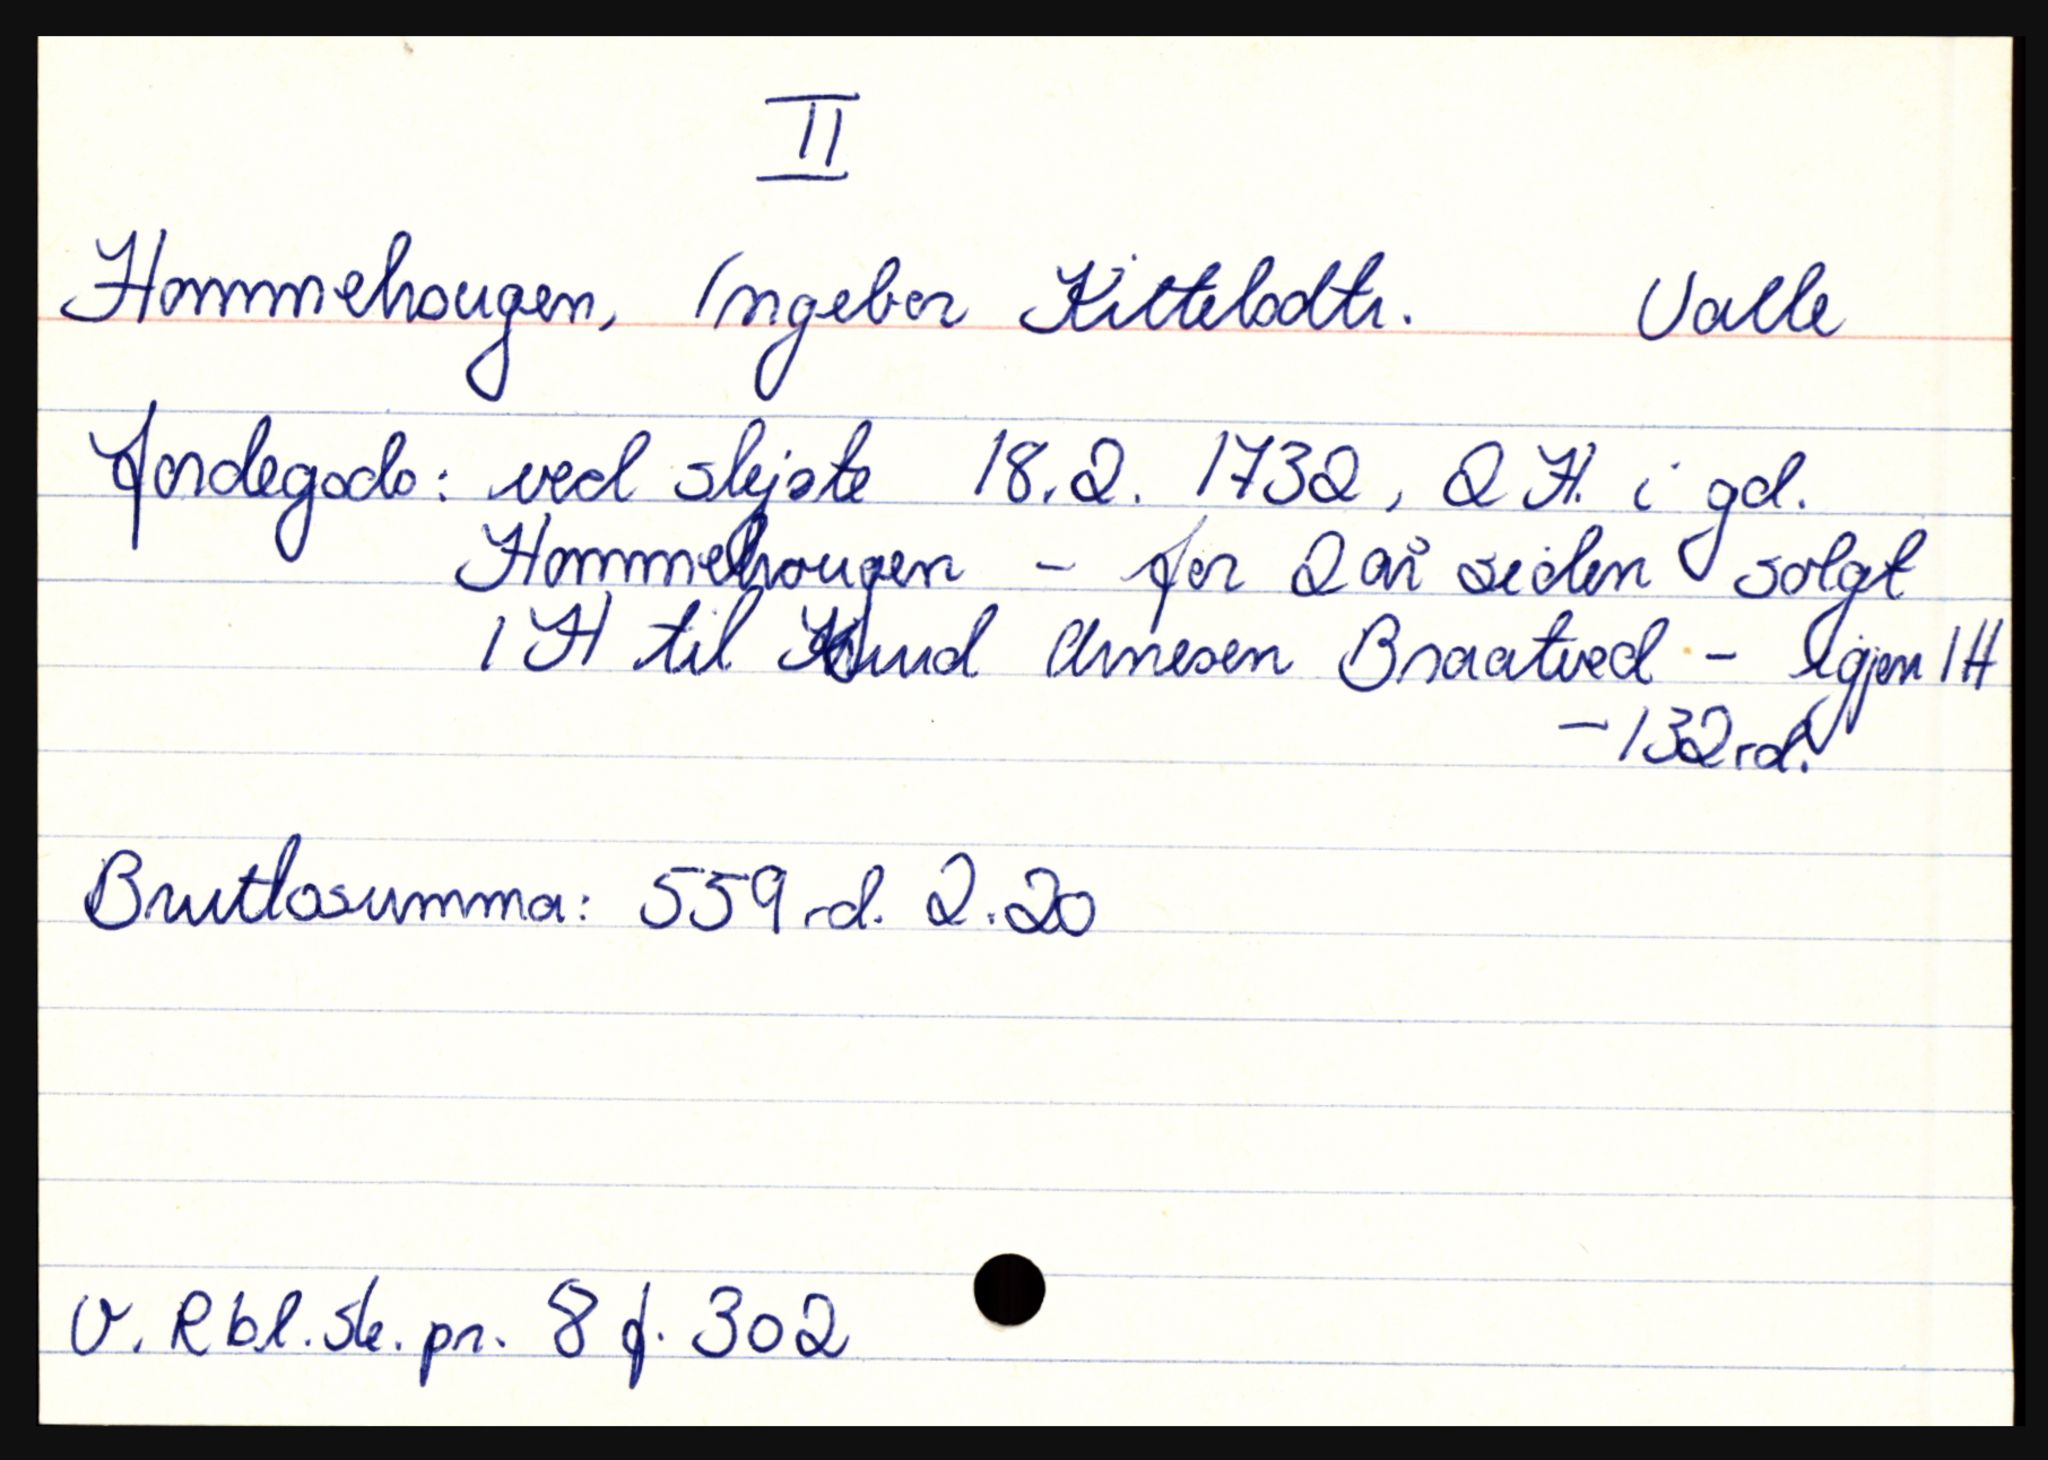 II
Hommehougen, Ingebor Kittelsdtr. Valle
Jordegods: ved skjøte 18.2. 1732, 2 H. i gd.
Hommehougen - for 2 år siden solgt
1 H til Knud Arnesen Braatved - igjen 1 H
- 132 rd.
Bruttosumma: 559 rd. 2.20
V. Rbl. sk. pr. 8 f. 302